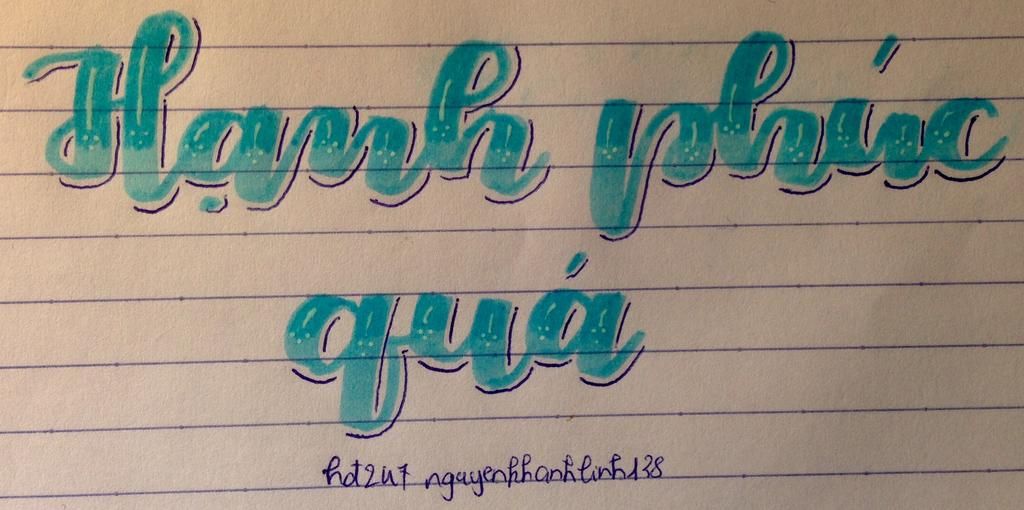 Hạnh phúc
quá
hdt247 nguyenkhanhlinh138